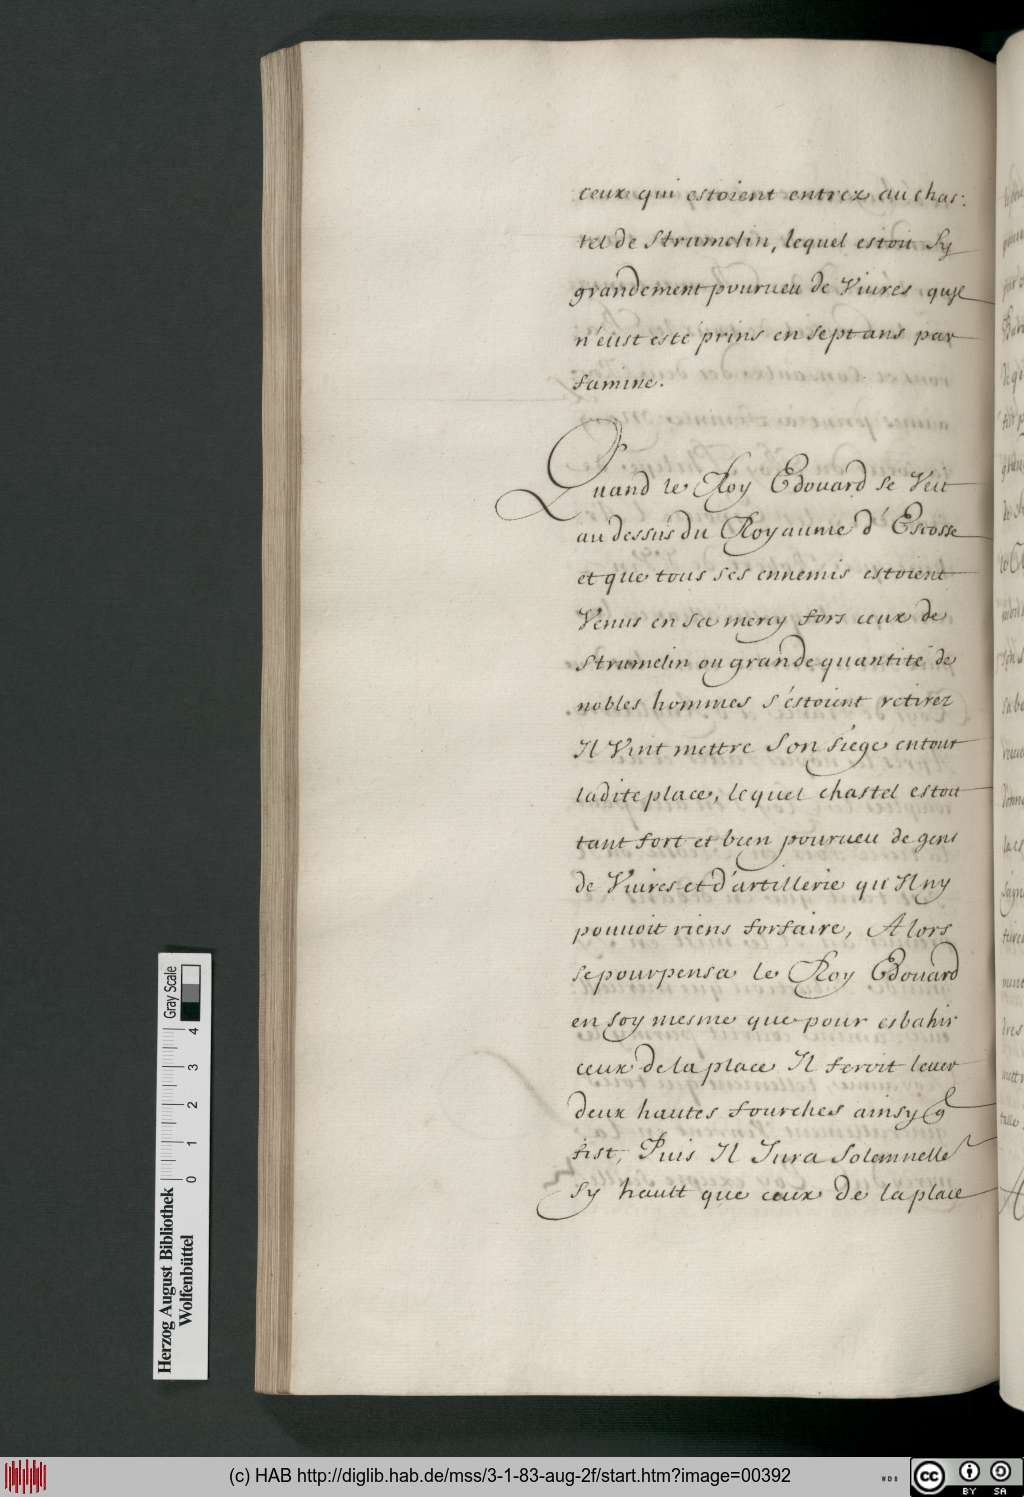 ceux qui estoient entrez au chas:
tel de Strumelin, lequel estoit Sy
grandement pourueu de Viures qu'Jl
n'eust esté prins en sept ans par
famine.
Quand le Roy Edouard se Veit
au dessus du Royaume d'Escosse
et que tous ses ennemis estoient
Venus en sa mercy fors ceux de
Strumelin ou grande quantité de
nobles hommes s'éstoient retirez
Il Vint mettre son siége entour
ladite place, lequel chastel estoit
tant fort et bien pourueu de gens
de Viures et d'artillerie qu'Il ny
pouuoit riens forfaire, Alors
se pourpensa le Roy Edouard
en soy mesme que pour esbahir
ceux de la place Il feroit leuer
deux hautes fourches ainsy q
fist, Puis Il Jura Solemnelle
Sy hault que ceux de la place
Herzog August Bibliothek
Wolfenbüttel
0 1 2 3 4
Gray Scale
(c) HAB http://diglib.hab.de/mss/3-1-83-aug-2f/start.htm?image=00392
WDB
cc BY SA